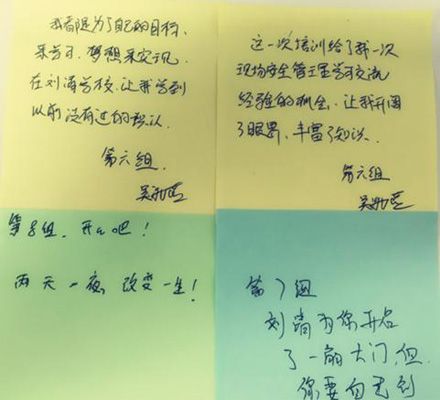 我都是为了自己的目标、
来学习,梦想来实现,
在刘海学校,让我学到
以前没有过的认.
第六组.
这一次培训给了我一次
现场安全管理学习交流
经验的机会,让我开阔
了眼界,丰富了知识.
第六组
第8组,开心吧!
两天一夜,改变一生!
第7组
刘为你开启
了一扇大门,但
你要自己到